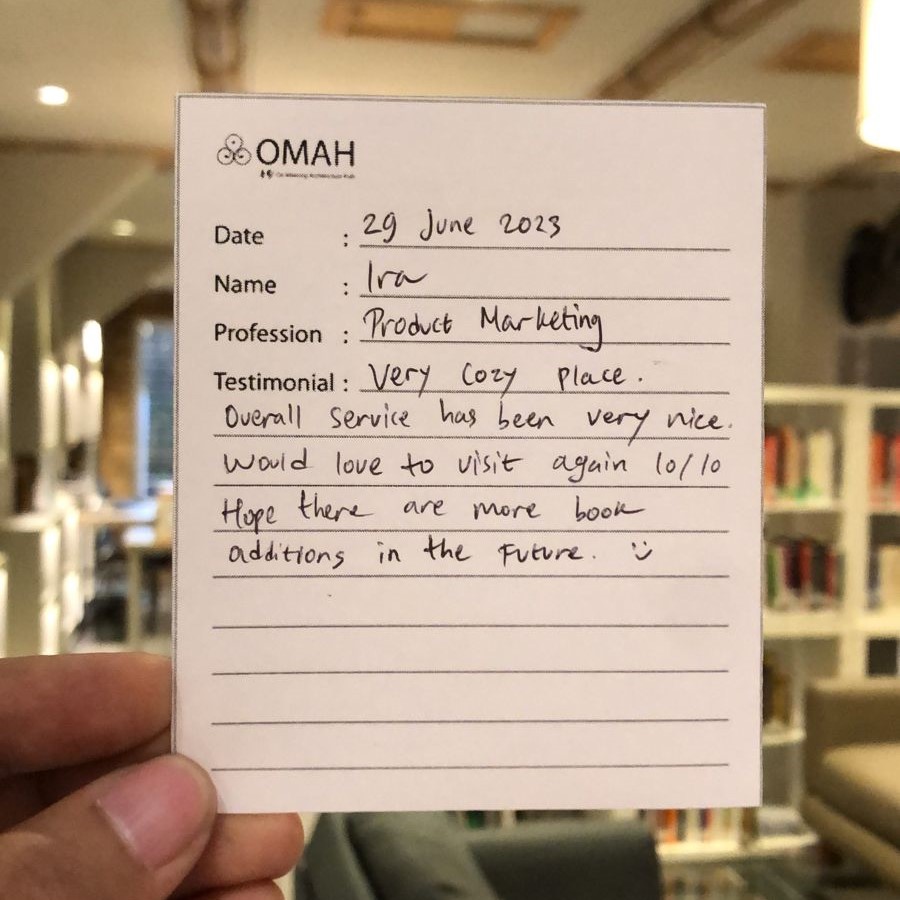 OMAH
Date : 29 June 2023
Name : Ira
Profession : Product Marketing
Testimonial : Very Cozy place.
Overall Service has been very nice.
Would love to visit again 10/10
Hope there are more book
additions in the Future. :)